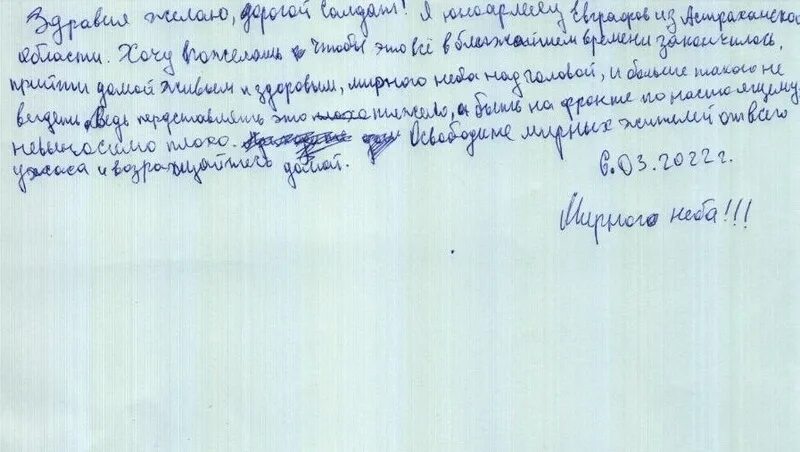 Здравия желаю, дорогой солдат! Я юнармеец Евграфов из Астраханской
области. Хочу пожелать чтобы это всё в ближайшем времени закончилось,
прийти домой живым и здоровым, мирного неба над головой, и больше такого не
видеть. Ведь представлять это тяжело, а быть на фронте по настоящему
невыносимо плохо. Освободите мирных жителей от всего
ужаса и возращайтесь домой.
6.03.2022г.
Мирного неба!!!